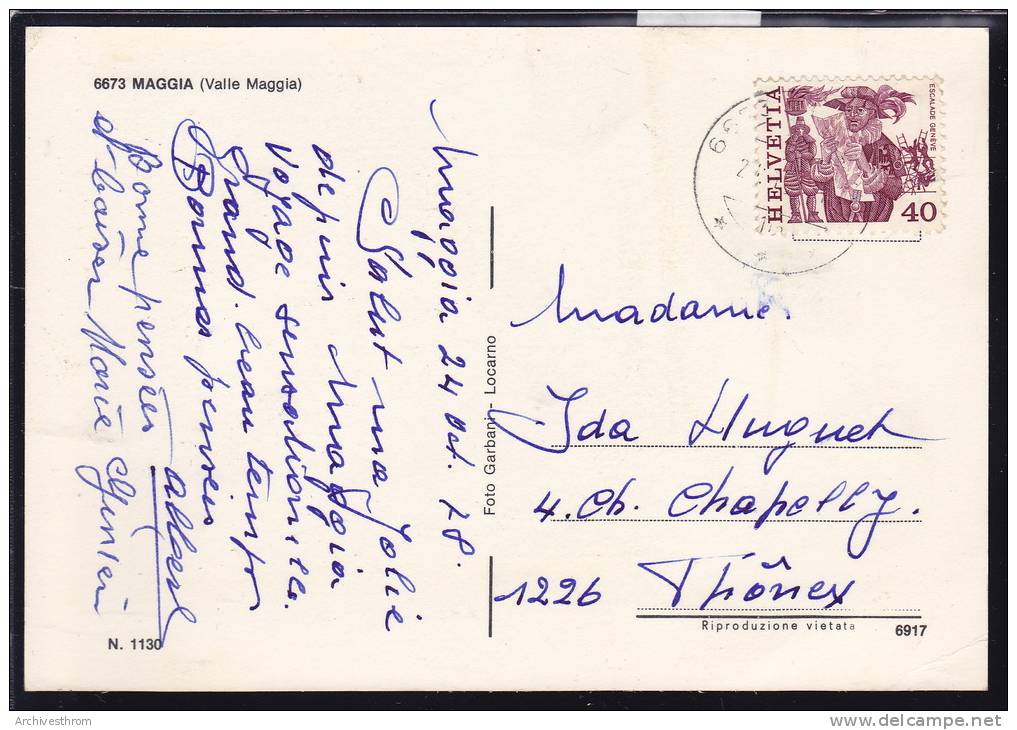 6673 MAGGIA (Valle Maggia)
Maggia 24 Oct. 78.
Salut ma Jolie
depuis Maggia
Voyage sensationnel.
Grand. beau temps
Bonnes pensées
Bonne pensées
et baiser Marie
Foto Garbani - Locarno
N. 1130
HELVETIA
ESCALADE GENÈVE
40
Madame.
Ida Huguet
4. Ch. Chapelly.
1226 Thônex
Riproduzione vietata
6917
Archivesthrom
delcampe.net